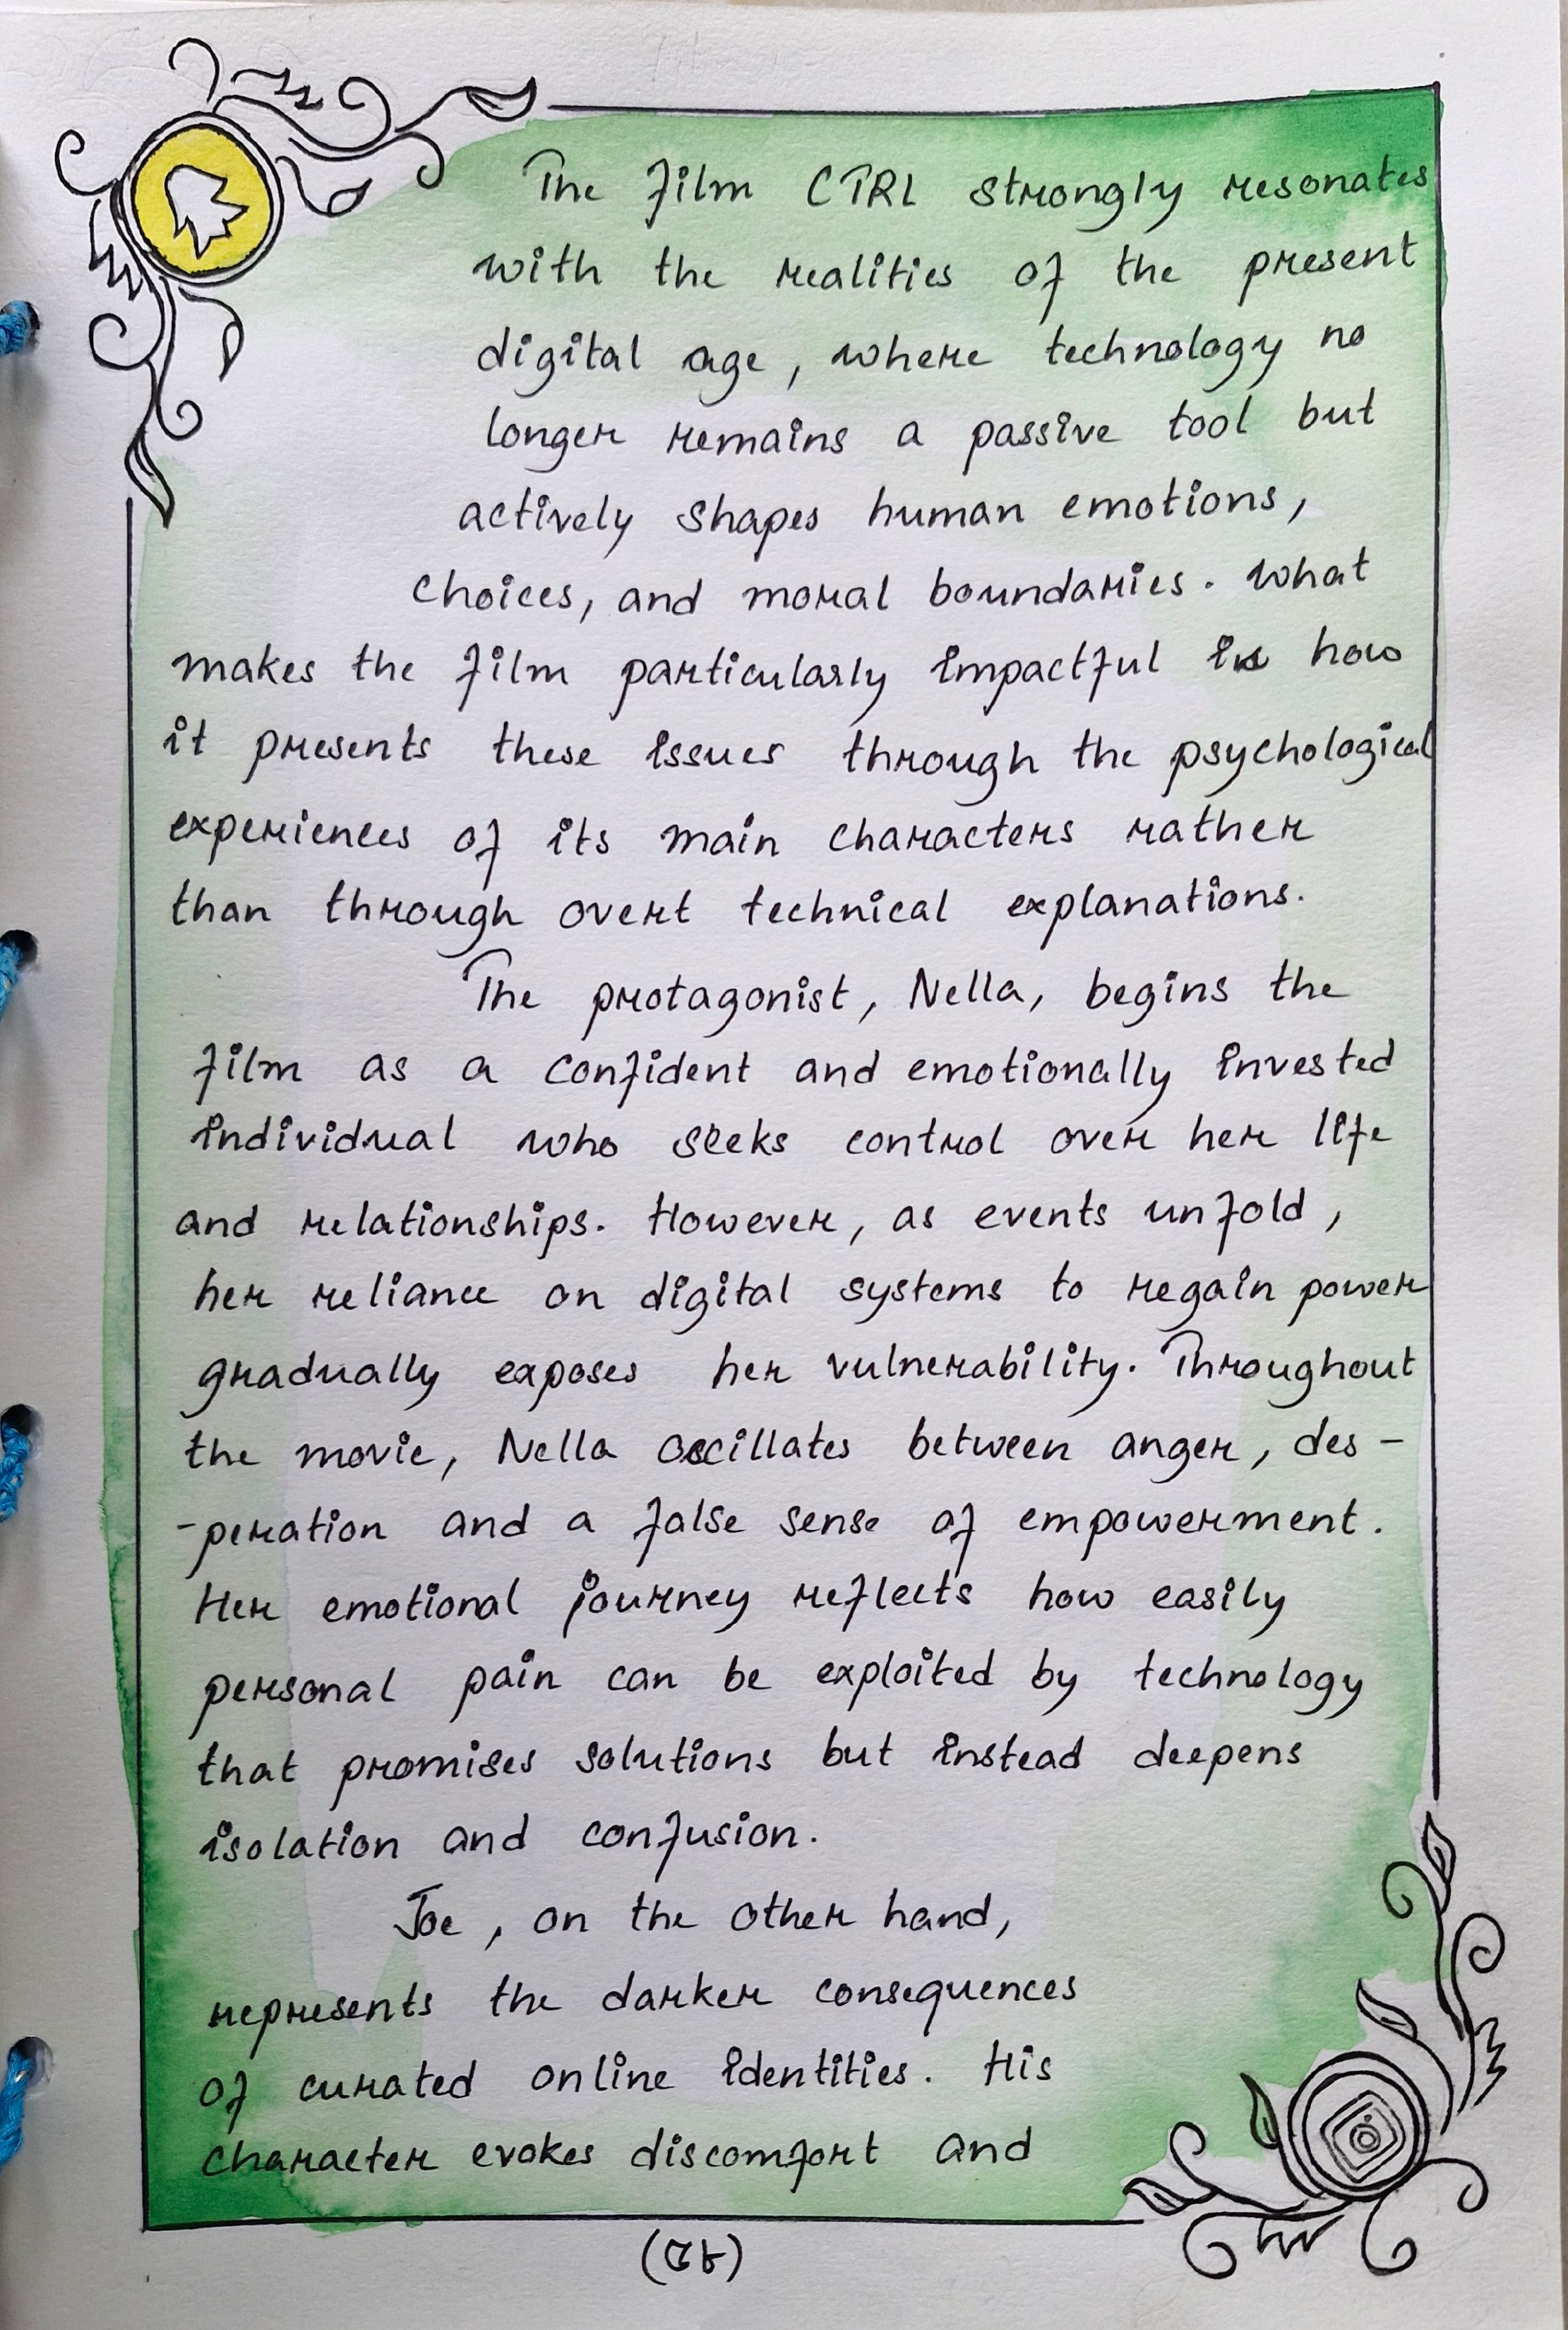 The film CTRL strongly resonates
with the realities of the present
digital age, where technology no
longer remains a passive tool but
actively shapes human emotions,
choices, and moral boundaries. What
makes the film particularly impactful is how
it presents these issues through the psychological
experiences of its main characters rather
than through overt technical explanations.
The protagonist, Nella, begins the
film as a confident and emotionally invested
individual who seeks control over her life
and relationships. However, as events unfold,
her reliance on digital systems to regain power
gradually exposes her vulnerability. Throughout
the movie, Nella oscillates between anger, des-
-peration and a false sense of empowerment.
Her emotional journey reflects how easily
personal pain can be exploited by technology
that promises solutions but instead deepens
isolation and confusion.
Joe, on the other hand,
represents the darker consequences
of curated online identities. His
character evokes discomfort and